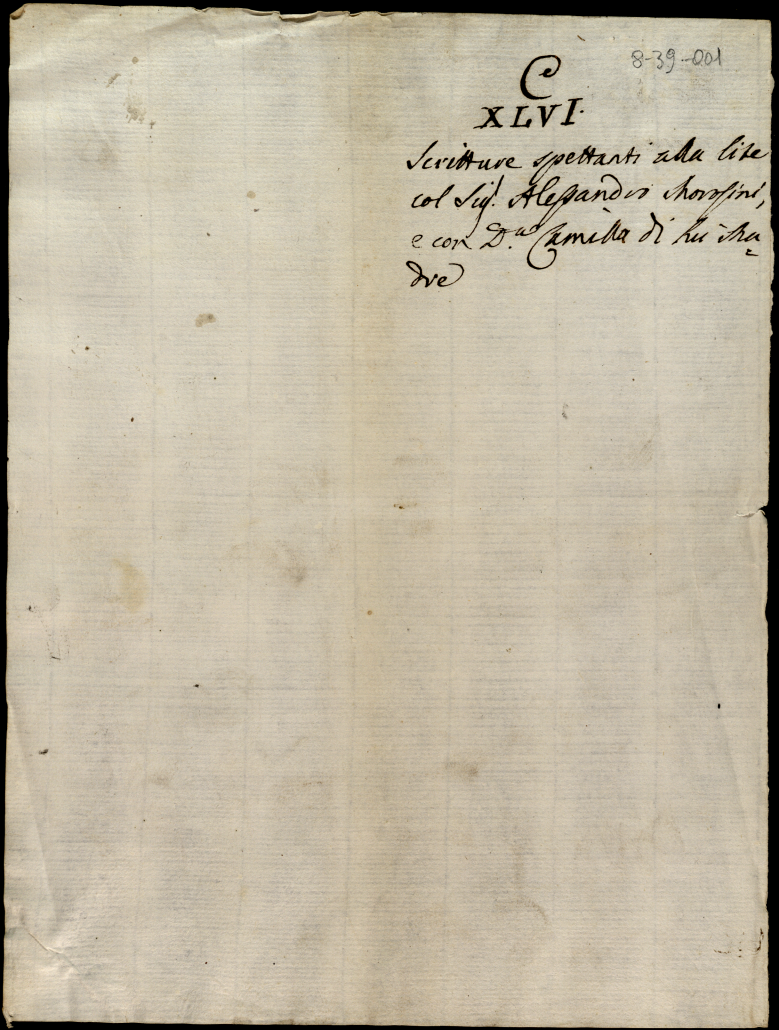 8-39-001
C
XLVI.
Scritture spettanti alla lite
col Sig.r Alessandro Morosini,
e con D.na Camilla di lui Ma=
dre